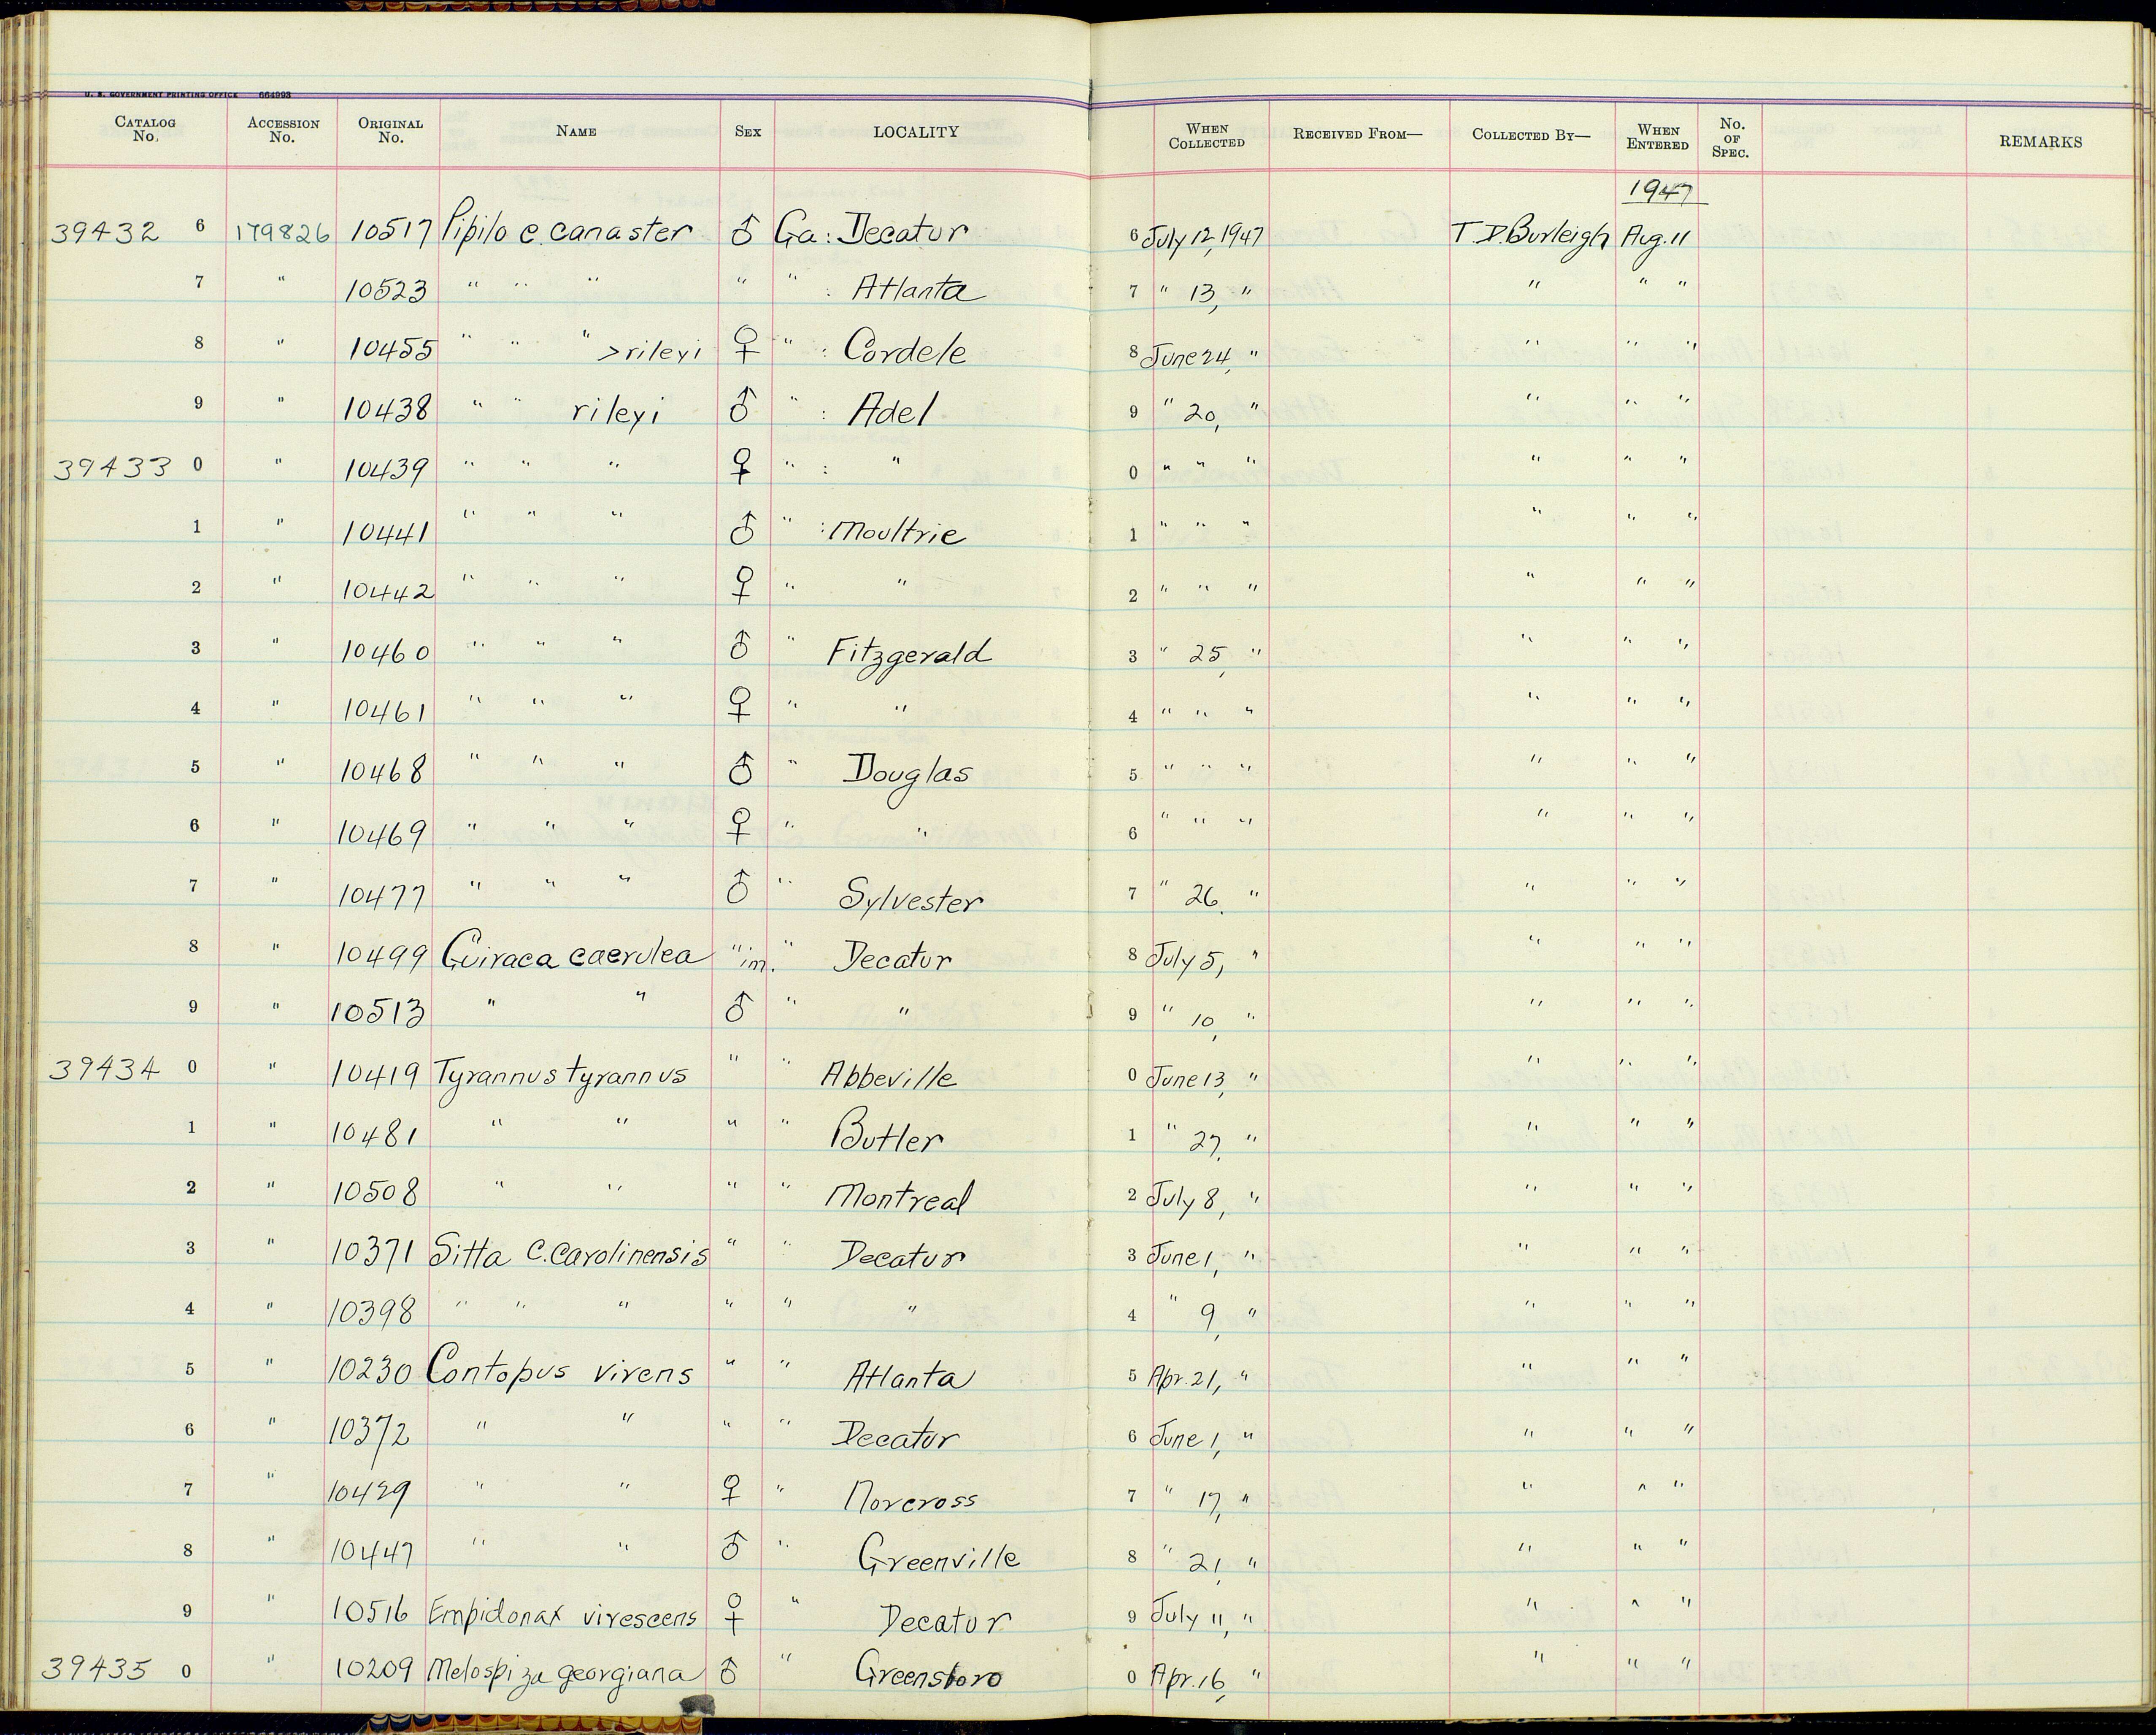 U. S. GOVERNMENT PRINTING OFFICE 664993
CATALOG No. ACCESSION No. ORIGINAL No. NAME SEX LOCALITY WHEN COLLECTED RECEIVED FROM— COLLECTED BY— WHEN ENTERED No. OF SPEC. REMARKS
1947
39432 6 179826 10517 Pipilo e. canaster ♂ Ga: Decatur 6 July 12, 1947 T.D. Burleigh Aug. 11
7 " 10523 " " " " " : Atlanta 7 " 13, " " " "
8 " 10455 " " " >rileyi ♀ " : Cordele 8 June 24, " " " "
9 " 10438 " " rileyi ♂ " : Adel 9 " 20, " " " "
39433 0 " 10439 " " " ♀ " : " 0 " " " " " "
1 " 10441 " " " ♂ " : Moultrie 1 " " " " " "
2 " 10442 " " " ♀ " " 2 " " " " " "
3 " 10460 " " " ♂ " Fitzgerald 3 " 25, " " " "
4 " 10461 " " " ♀ " " 4 " " " " " "
5 " 10468 " " " ♂ " Douglas 5 " " " " " "
6 " 10469 " " " ♀ " " 6 " " " " " "
7 " 10477 " " " ♂ " Sylvester 7 " 26, " " " "
8 " 10499 Guiraca caerulea " im. " Decatur 8 July 5, " " " "
9 " 10513 " " ♂ " " 9 " 10, " " " "
39434 0 " 10419 Tyrannus tyrannus " " Abbeville 0 June 13, " " " "
1 " 10481 " " " " Butler 1 " 27, " " " "
2 " 10508 " " " " Montreal 2 July 8, " " " "
3 " 10371 Sitta c. carolinensis " " Decatur 3 June 1, " " " "
4 " 10398 " " " " " " 4 " 9, " " " "
5 " 10230 Contopus virens " " Atlanta 5 Apr. 21, " " " "
6 " 10372 " " " " Decatur 6 June 1, " " " "
7 " 10429 " " ♀ " Norcross 7 " 17, " " " "
8 " 10447 " " ♂ " Greenville 8 " 21, " " " "
9 " 10516 Empidonax virescens ♀ " Decatur 9 July 11, " " " "
39435 0 " 10209 Melospiza georgiana ♂ " Greensboro 0 Apr. 16, " " " "